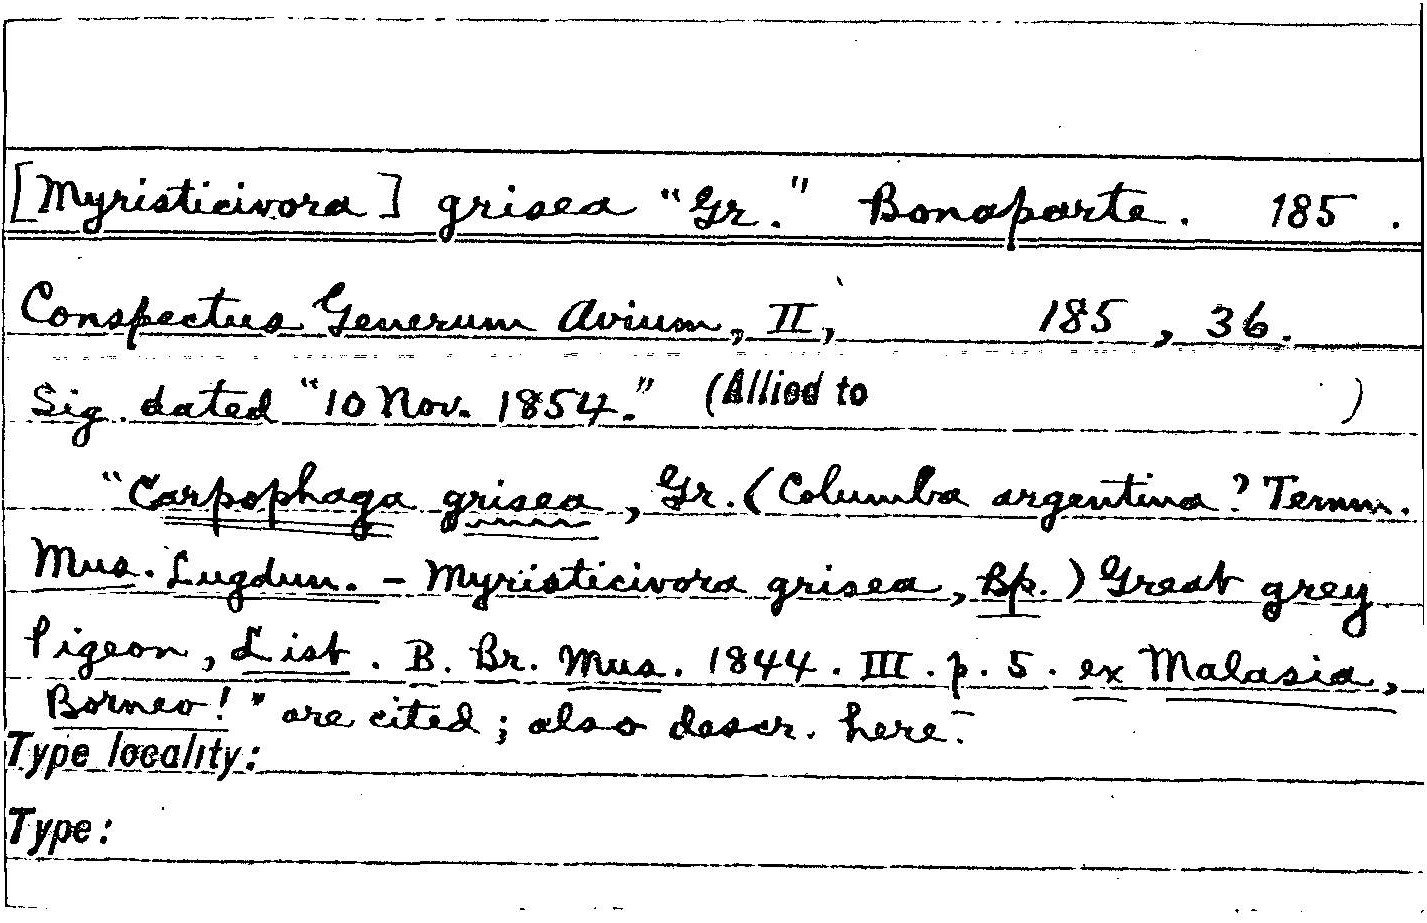 [Myristicivora] grisea "Gr." Bonaparte. 185 .
Conspectus Generum Avium, II, 185 , 36.
Sig. dated "10 Nov. 1854." (Allied to )
"Carpophaga grisea, Gr. (Columba argentina? Temm.
Mus. Lugdun. - Myristicivora grisea, Bp.) Great grey
Pigeon, List. B. Br. Mus. 1844. III. p. 5. ex Malasia,
Borneo!" are cited; also descr. here.
Type locality:
Type: